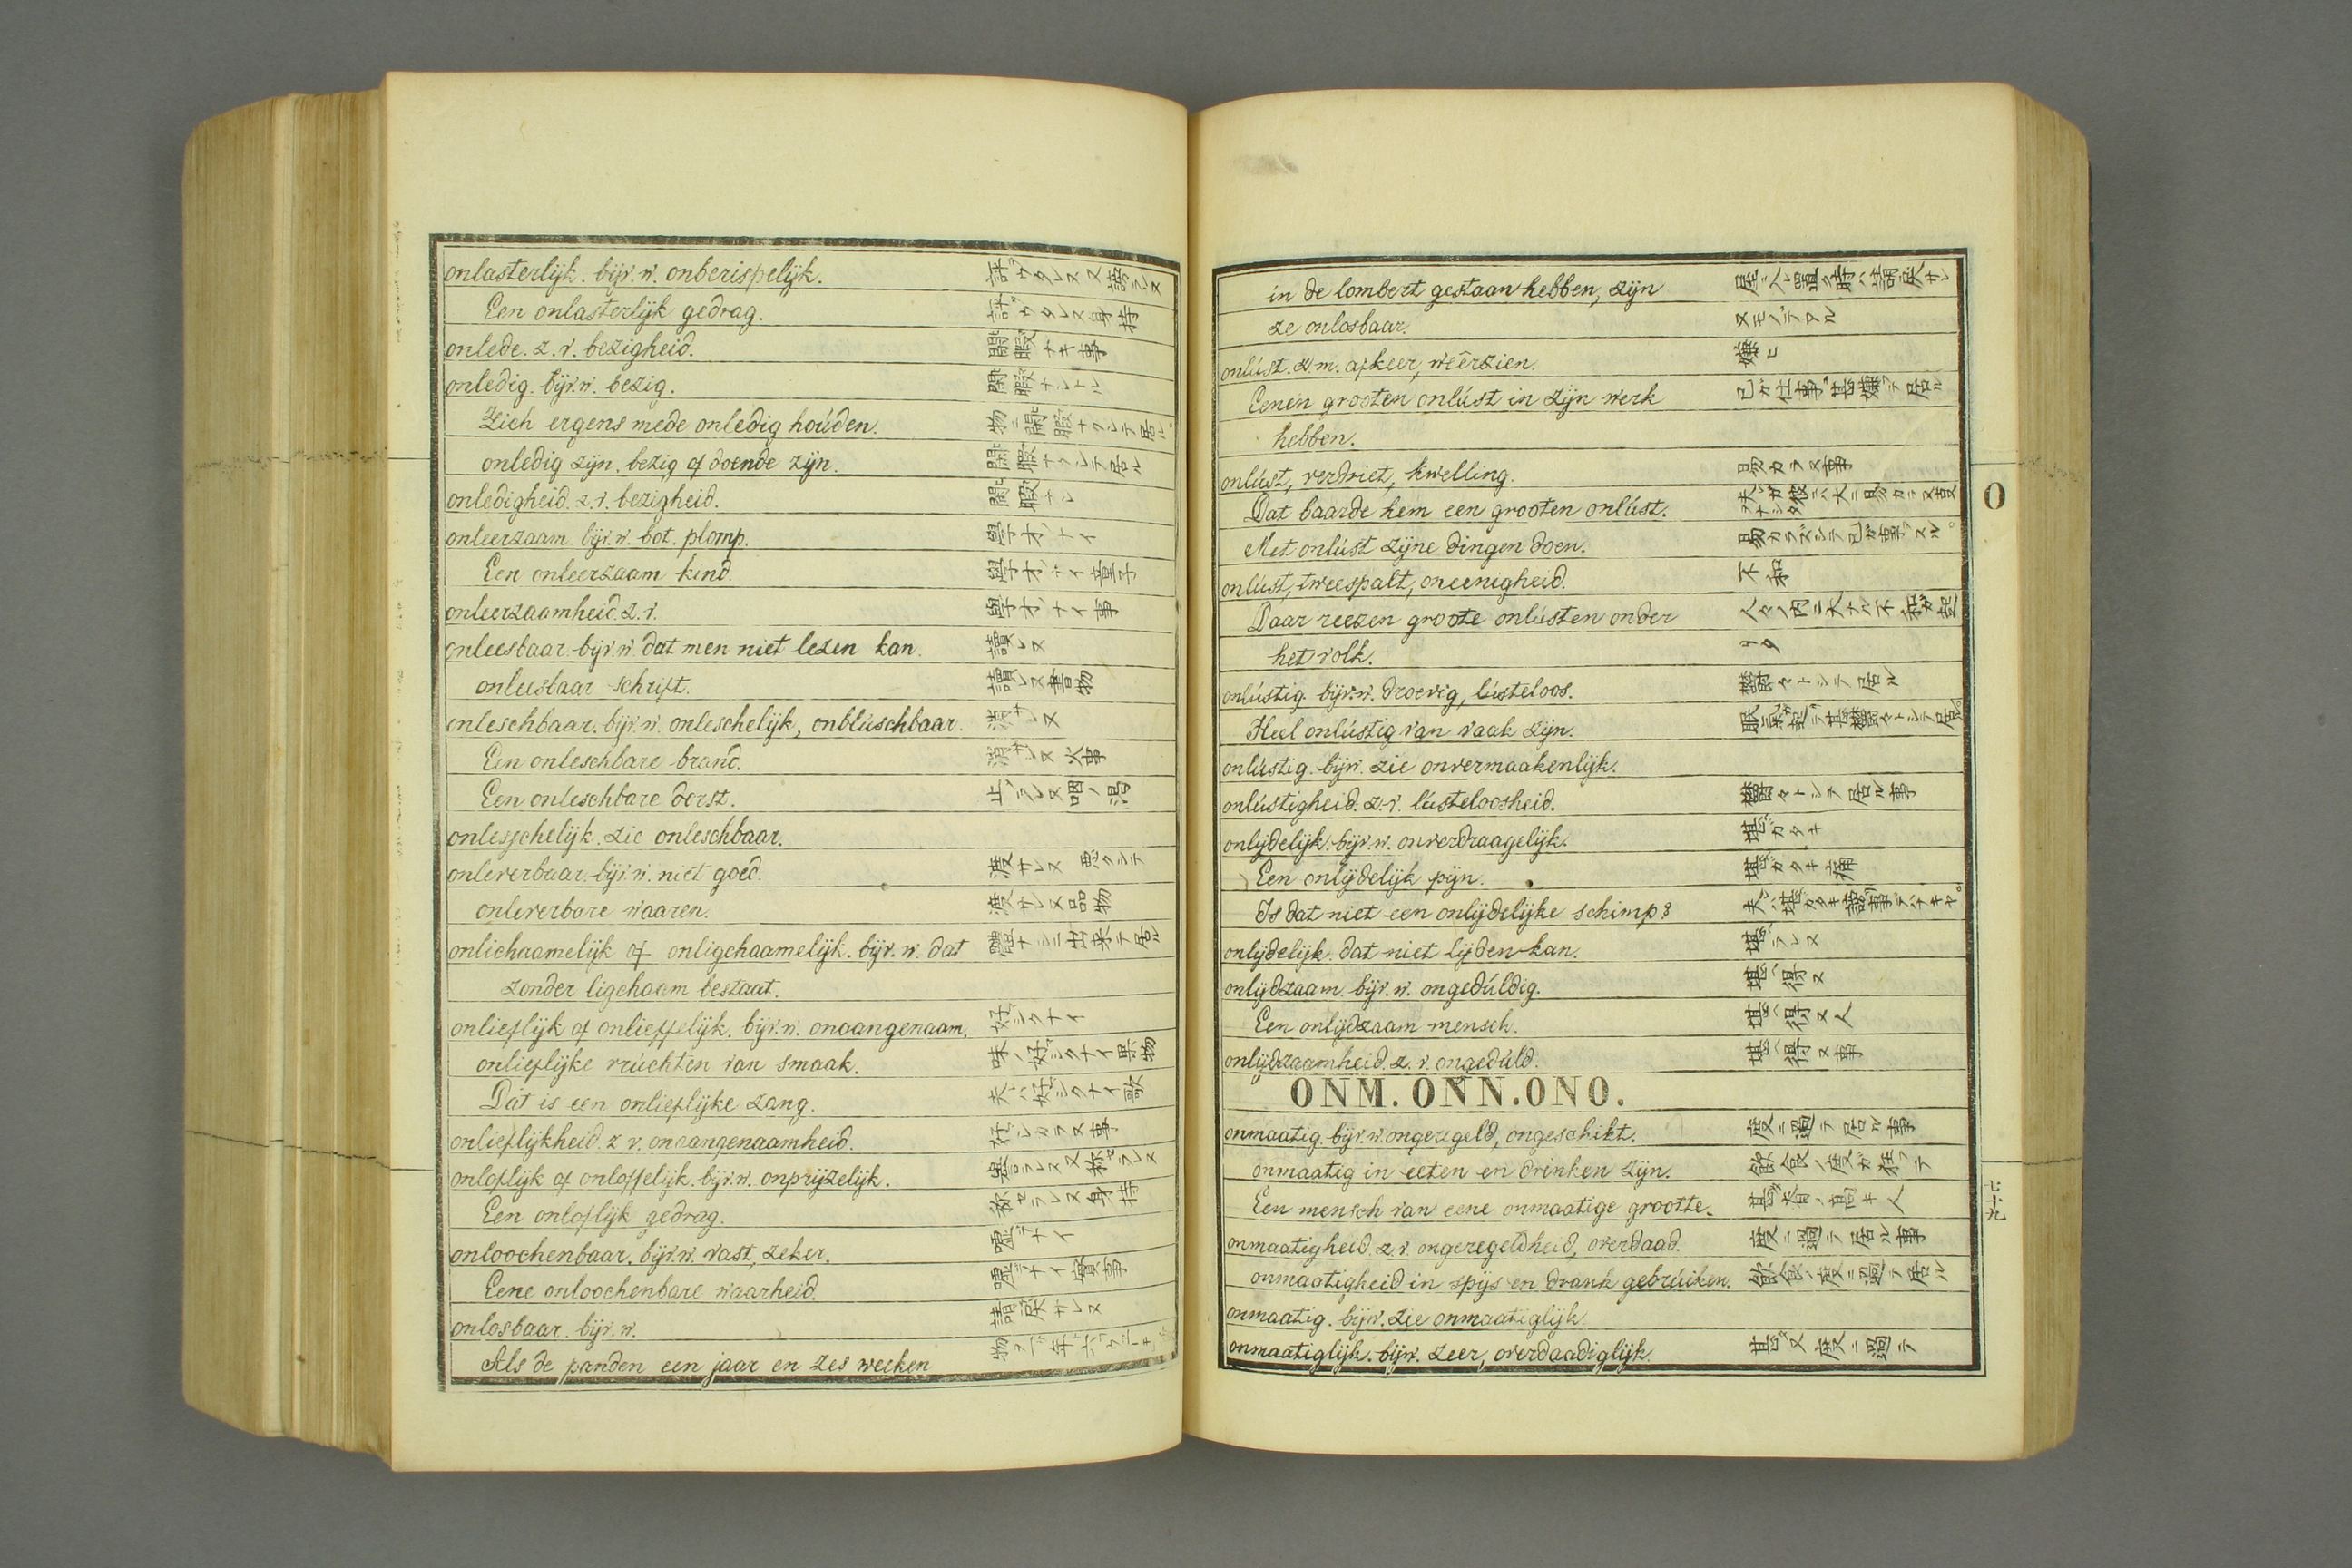 onlasterlijk. bijv. w. onberispelijk.
Een onlasterlijk gedrag. 身持
onlede. z. v. bezigheid. 閑暇ナキ事
onledig. bijv. w. bezig. 閑暇ナシトル
Zich ergens mede onledig houden. 物ニ閑暇ナクシテ居ル
onledig zijn. bezig of doende zijn. 閑暇ナクシテ居ル
onledigheid. z. v. bezigheid. 閑暇ナシ
onleerzaam. bijv. w. bot. plomp. 學才ノナイ
Een onleerzaam kind. 學才ノナイ童子
onleerzaamheid. z. v. 學才ノナイ事
onleesbaar. bijv. w. dat men niet lezen kan. 讀レヌ
onleesbaar schrift. 讀レヌ書物
onleschbaar. bijv. w. onleschelijk, onbluschbaar. 消サレヌ
Een onleschbare brand. 消サレヌ火事
Een onleschbare dorst. 止ラレヌ咽ノ渇
onlesschelijk. zie onleschbaar.
onleverbaar. bijv. w. niet goed. 渡サレヌ 悪クシテ
onleverbare waaren. 渡サレヌ品物
onlichaamelijk of onligchaamelijk. bijv. w. dat 體ナシニ出来テ居ル
zonder ligchaam bestaat.
onlieflijk of onlieffelijk. bijv. w. onaangenaam. 好シクナイ
onlieflijke vruchten van smaak. 味ノ好シクナイ果物
Dat is een onlieflijke zang. 夫ハ好シクナイ歌
onlieflijkheid. z. v. onaangenaamheid. 好シカラヌ事
onloflijk of onloffelijk. bijv. w. onprijzelijk. 誉ラレヌ又称セラレヌ
Een onloflijk gedrag. 称セラレヌ身持
onloochenbaar. bijv. w. vast, zeker. 嘘デナイ
Eene onloochenbare waarheid. 嘘デナイ實事
onlosbaar. bijv. w. 請戻サレヌ
Als de panden een jaar en zes weeken
in de lombert gestaan hebben, zijn 屋ニ入置ク時ハ請戻サレ
ze onlosbaar. ヌモノデアル
onlust. z. m. afkeer, weêrzien. 嫌ヒ
Eenen grooten onlust in zijn werk 己ガ仕事ヲ甚嫌フテ居ル
hebben.
onlust, verdriet, kwelling. 易カラヌ事
Dat baarde hem een grooten onlust.
Met onlust zijne dingen doen. 易カラズシテ己ガ事ヲスル。
onlust, tweespalt, oneenigheid. 不和
Daar reezen groote onlusten onder 人々ノ内ニ大ナル不和ガ起
het volk. リタ
onlustig. bijv. w. droevig, lusteloos. 欝々トシテ居ル
Heel onlustig van vaak zijn. 眠氣ガ起テ甚欝々トシテ居ル。
onlustig. bijw. zie onvermaakenlijk.
onlustigheid. z. v. lusteloosheid. 欝々トシテ居ル事
onlijdelijk. bijv. w. onverdraagelijk. 堪ガタキ
Een onlijdelijk pijn. 堪ガタキ痛
Is dat niet een onlijdelijke schimp?
onlijdelijk. dat niet lijden kan. 堪ラレヌ
onlijdzaam. bijv. w. ongeduldig. 堪ヘ得ヌ
Een onlijdzaam mensch. 堪ヘ得ヌ人
onlijdzaamheid. z. v. ongeduld. 堪ヘ得ヌ事
ONM. ONN. ONO.
onmaatig. bijv. w. ongeregeld, ongeschikt. 度ニ過テ居ル事
onmaatig in eeten en drinken zijn. 飲食ノ度ガ
Een mensch van eene onmaatige grootte. 甚ダ脊ノ高キ人
onmaatigheid. z. v. ongeregeldheid, overdaad. 度ニ過テ居ル事
onmaatigheid in spijs en drank gebruiken. 飲食ノ度ニ過テ居ル
onmaatig. bijw. zie onmaatiglijk.
onmaatiglijk. bijw. zeer, overdaadiglijk. 甚ダ又度ニ過テ
O
七十九